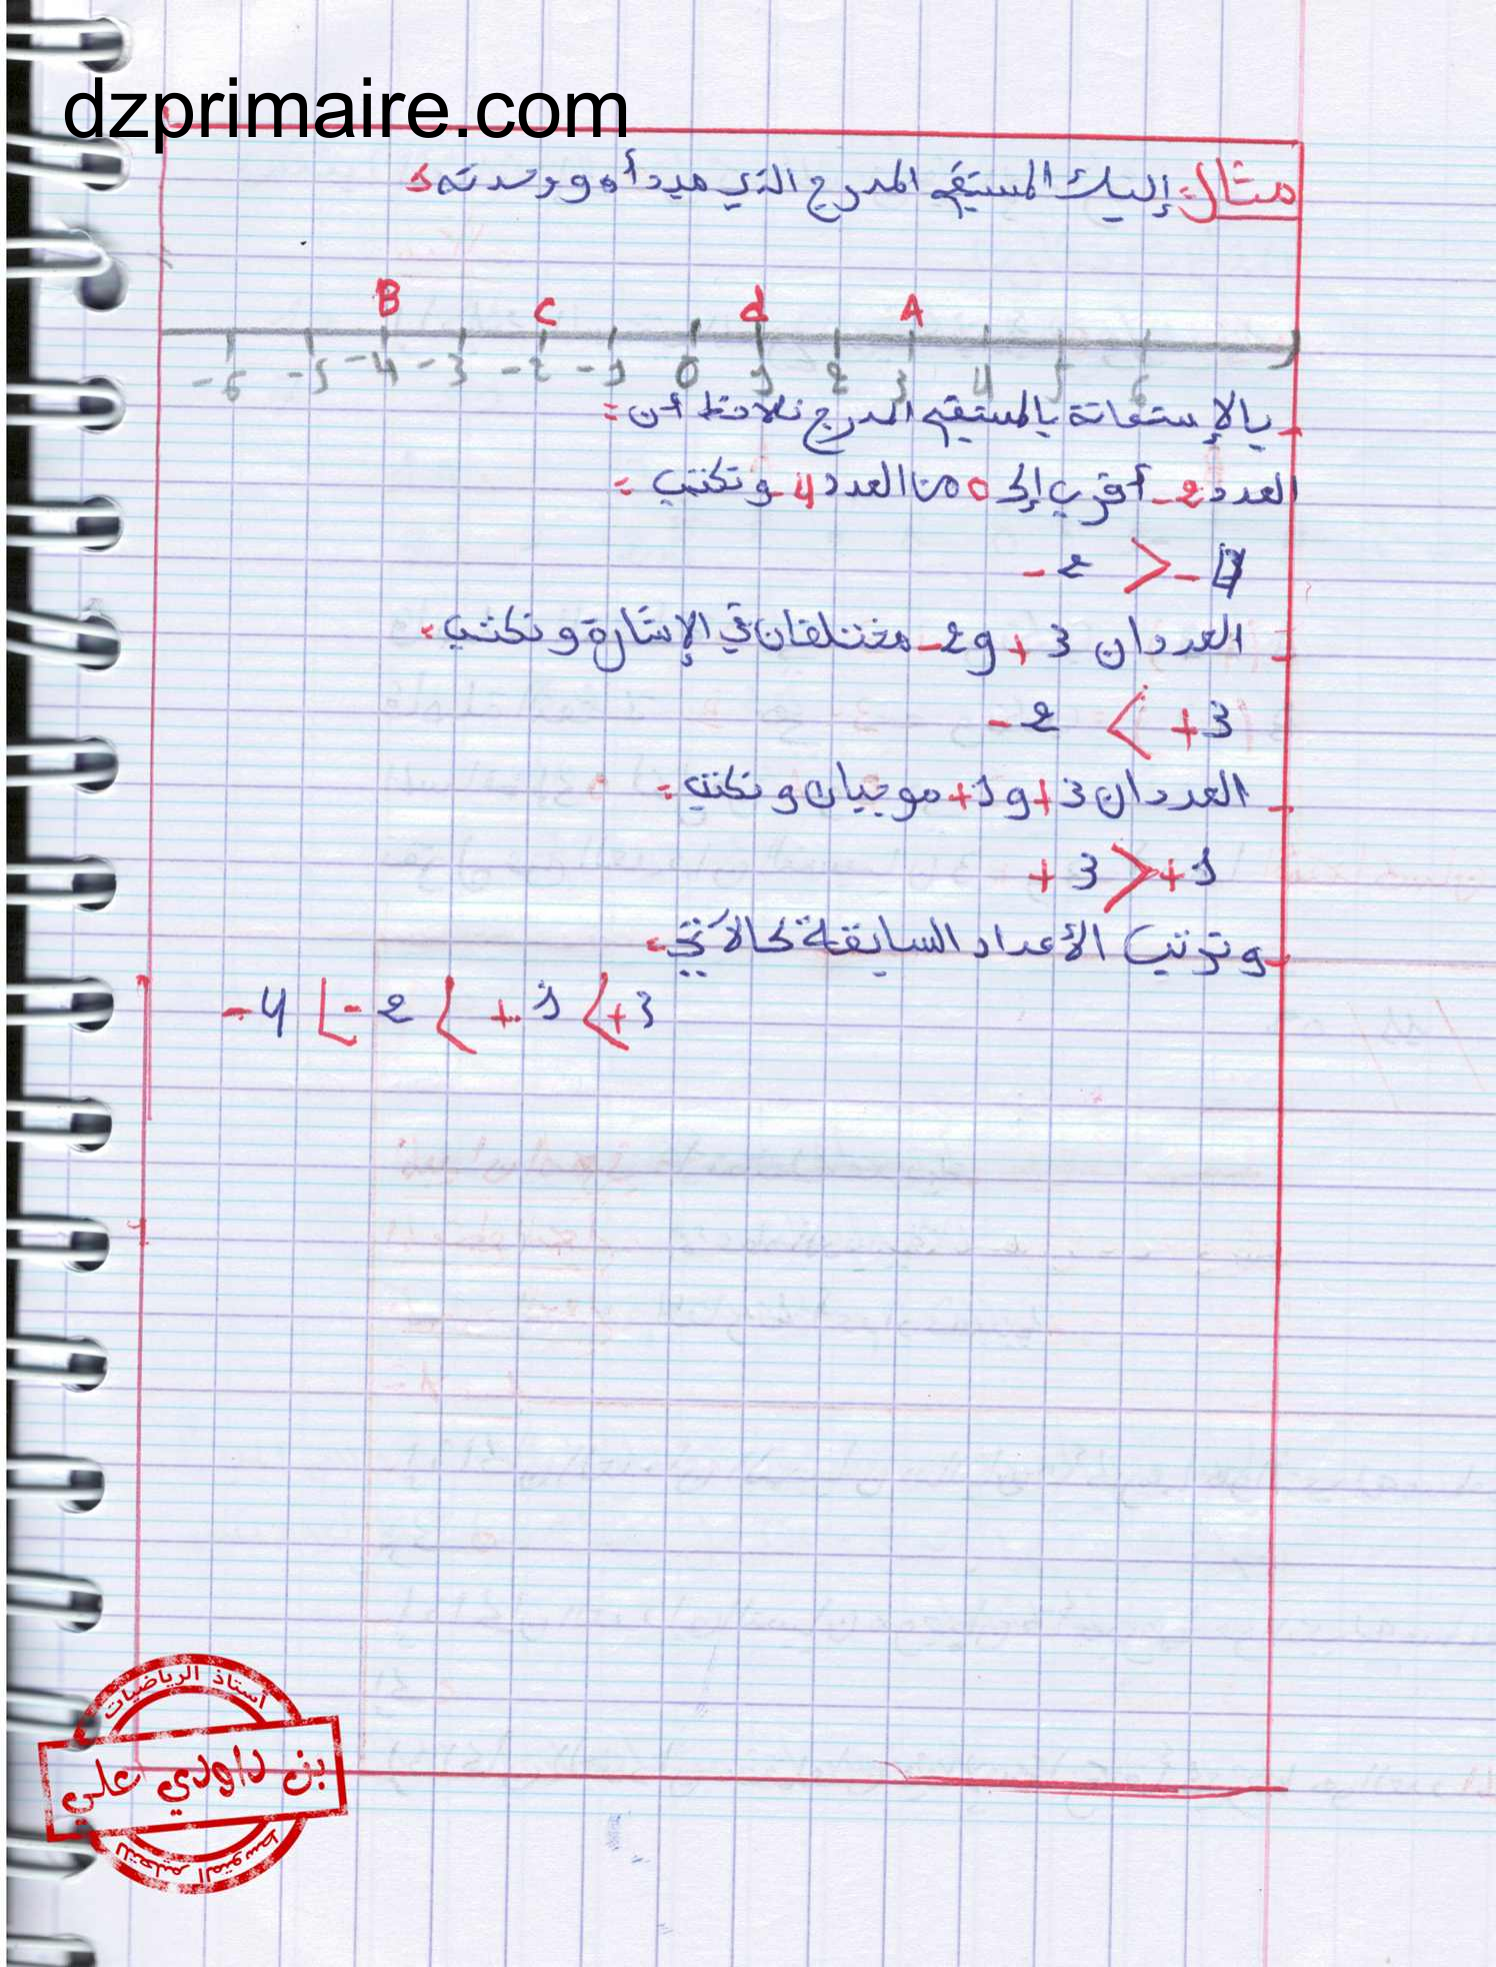 dzprimaire.com
مثال: إليك المستقيم المدرج الذي مبدأه 0 ووحدته
B C d A
-6 -5 -4 -3 -2 -1 0 1 2 3 4 5 6
- بالإستعانة بالمستقيم المدرج نلاحظ أن:
العدد 2- أقرب إلى 0 من العدد 4- ونكتب:
-2 > -4
- العددان 3+ و 2- مختلفان في الإشارة ونكتب:
-2 < +3
- العددان 3+ و 1+ موجبان ونكتب:
+3 > +1
- وترتيب الأعداد السابقة كالآتي:
-4 < -2 < +1 < +3
أستاذ الرياضيات
بن داودي علي
للتعليم المتوسط